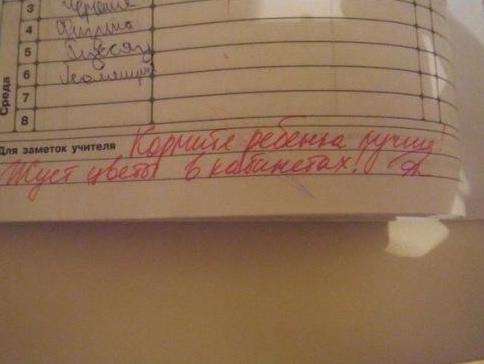 3 Черчение
4 Физика
5
6 Геометрия
7
8
Среда
Для заметок учителя Кормите ребенка лучше
Жуёт цветы в кабинетах!